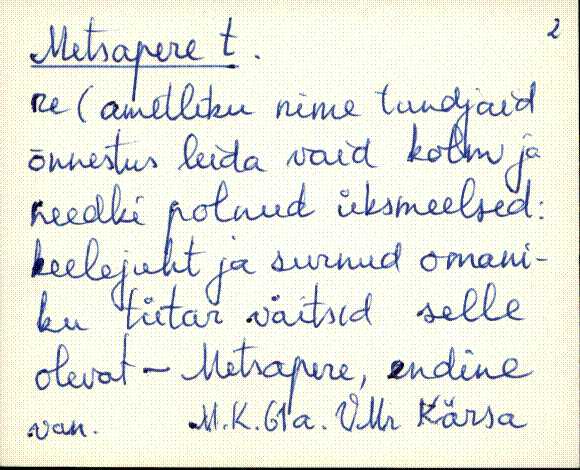 2
Metsapere t.
re (ametliku nime tundjaid
õnnestus leida vaid kolm ja
needki polnud üksmeelsed:
keelejuht ja surnud omani-
ku tütar väitsid selle
olevat - Metsapere, endine
van. M.K. 61a. VMr Kärsa